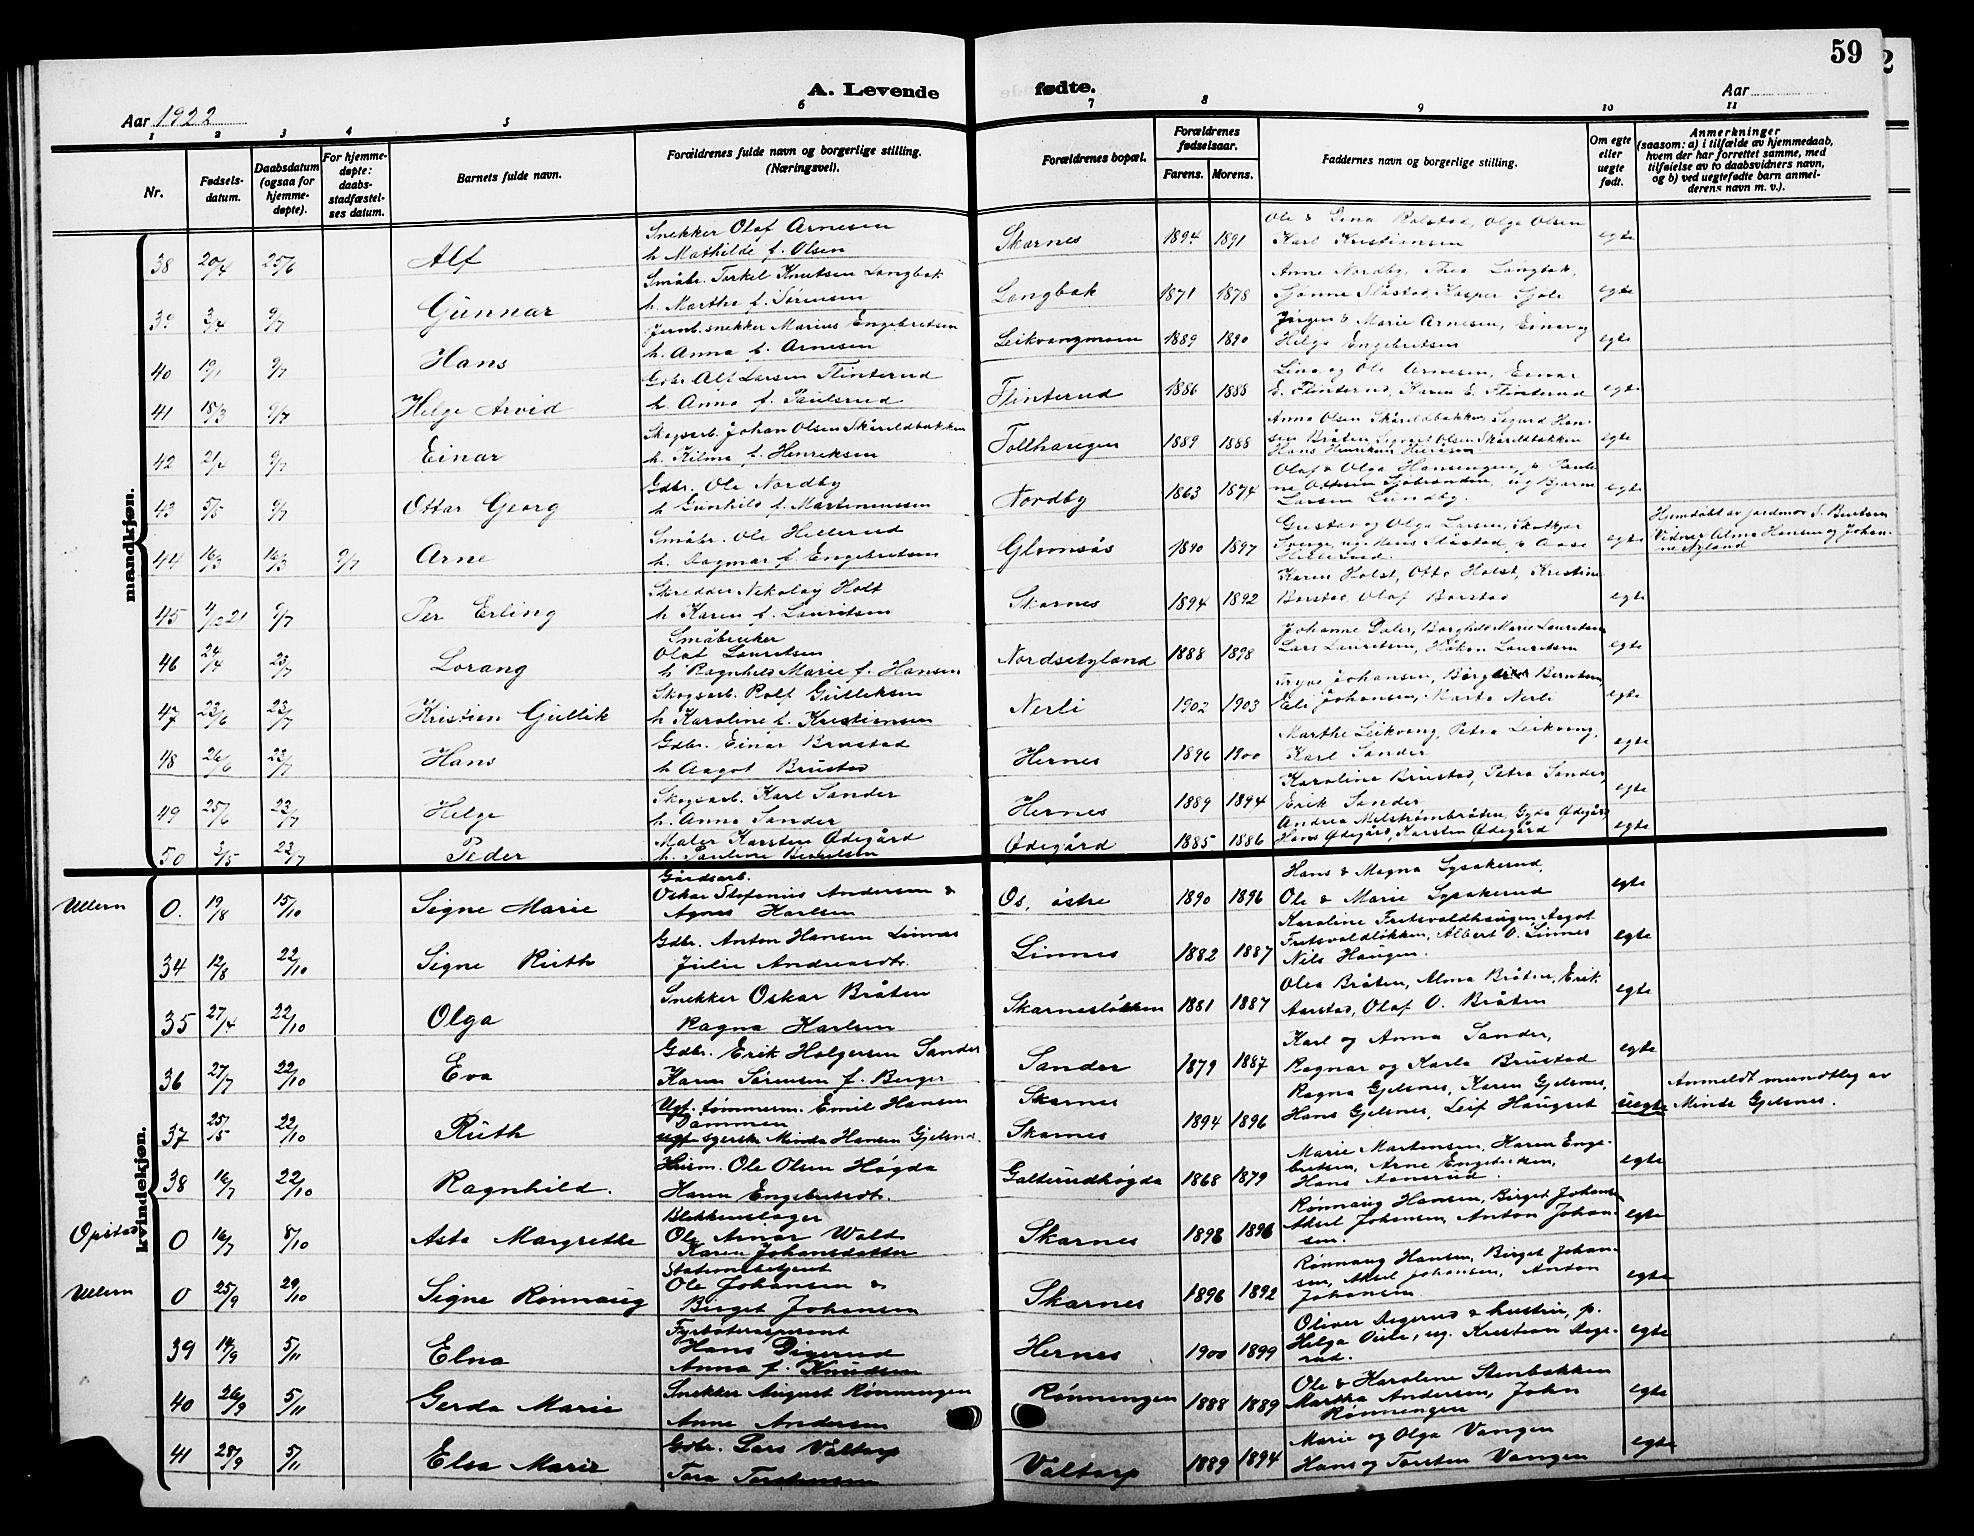 59
A. Levende fødte.
Aar 1922
Aar
1 2 3 4 5 6 7 8 9 10 11
Nr.
Fødsels-
datum.
Daabsdatum
(ogsaa for
hjemme-
døpte).
For hjemme-
døpte:
daabs-
stadfæstel-
ses datum.
Barnets fulde navn.
Forældrenes fulde navn og borgerlige stilling.
(Næringsvei).
Forældrenes bopæl.
Forældrenes
fødselsaar.
Farens. Morens.
Faddernes navn og borgerlige stilling.
Om egte
eller
uegte
født.
Anmerkninger
(saasom: a) i tilfælde av hjemmedaab,
hvem der har forrettet samme, med
tilføielse av to daabsvidners navn,
og b) ved uegtefødte barn anmel-
derens navn m. v.).
mandkjøn.
38 20/4 25/6 Alf
Snekker Olaf Arnesen
h. Mathilde f. Olsen
Skarnes 1894 1891
Ole & Lina Rolstad, Olga Olsen
Karl Kristiansen
egte
39 3/4 9/7 Gunnar
Småbr. Terkel Knutsen Langbak
h. Marthe f. Sørensen
Langbak 1871 1878
Anne Nordby, Thea Langbak,
egte
40 19/1 9/7 Hans
Jernb.snekker Marius Engebretsen
h. Anna f. Arnesen
Leikvangmoen 1889 1890
Jørgen & Marie Arnesen, Einar og
Helga Engebretsen
egte
41 15/3 9/7 Helge Arvid
Gdbr. Alf Larsen Flinterud
h. Anna f. Paulsrud
Flinterud 1886 1888
Lina og Ole Arnesen, Einar
E. Flinterud, Karen E. Flinterud
egte
42 2/4 9/7 Einar
Skogsarb. Johan Olsen Skårildbakken
h. Hilma f. Henriksen
Tollhaugen 1889 1888
Anna Olsen Skårildbakken, Sigurd Han-
sen Bråten, Sigvart Olsen Skårildbakken
egte
43 5/5 9/7 Ottar Georg
Gdbr. Ole Nordby
h. Gunhild f. Martinussen
Nordby 1863 1874
Larsen Lundby.
egte
44 16/3 16/3 9/7 Arne
Småbr. Ole Hellerud
h. Dagmar f. Engebretsen
Glomsås 1890 1897
Gustav og Olga Larsen, Skotkjør
Hellerud.
egte
Hjemdøbt av jordmor S. Berntsen
Vidner Alma Hansen og Johan-
ne Nyland
45 4/12 21 9/7 Per Erling
Skredder Nikolay Holt
h. Karen f. Lauritsen
Skarnes 1894 1892
Karen Holst, Otto Holst, Kristine
Borstad, Olaf Borstad
egte
46 24/4 23/7 Lorang
Småbruker
Olaf Lauritsen
h. Ragnhild Marie f. Hansen
Nordsetyland 1888 1898
Johanne Daler, Borghild Marie Lauritsen
Lars Lauritsen, Håkon Lauritsen
egte
47 23/6 23/7 Kristian Gullik
Skogsarb. Rolf Gulliksen
h. Karoline f. Kristiansen
Nerli 1902 1903
Eli Johansen, Marta Nerli
egte
48 26/6 23/7 Hans
Gdbr. Einar Brustad
h. Aagot Brustad
Hernes 1896 1900
Marthe Leikvang, Petra Leikvang,
Karl Sander
egte
49 25/6 23/7 Helge
Skogsarb. Karl Sander
h. Anna Sander
Hernes 1889 1894
Karoline Brustad, Petra Sander,
Erik Sander
egte
50 3/5 23/7 Peder
Maler Karsten Ødegård
h. Pauline Berntsen
Ødegård 1885 1886
Andrea Melstrømbråten, Gyda Ødegård
Hans Ødegård, Karsten Ødegård
egte
kvindekjøn.
Ullern
0. 19/8 15/10 Signe Marie
Gårdsarb.
Oskar Stefanius Andersen &
Agnes Karlsen
Os, østre 1890 1896
Hans & Magna Lysakerud,
Ole & Marie Lysakerud
egte
34 12/8 22/10 Signe Ruth
Gdbr. Anton Hansen Linnes
Julie Andreasdt.
Linnes 1882 1887
Karoline Fretsvoldhaugen, Aagot
Fretsvoldløkken, Albert O. Linnes
Nils Haugen.
egte
35 27/4 22/10 Olga
Snekker Oskar Bråten
Ragna Karlsen
Skarnesløkken 1881 1887
Olea Bråten, Alma Bråten, Erik
Aarstad, Olaf O. Bråten
egte
36 27/7 22/10 Eva
Gdbr. Erik Holgersen Sander
Karen Sørensen f. Berger
Sander 1879 1887
Karl og Anna Sander,
Ragnar og Karla Brustad
egte
37 25/5 22/10 Ruth
Ugt. tømmerm. Emil Hansen
Dammen
ugt syerske Minda Hansen Gjelsnes.
Skarnes
Skarnes 1894 1896
Ragna Gjelsnes, Karen Gjelsnes,
Hans Gjelsnes, Leif Haugset
uegte
Anmeldt mundtlig av
Minda Gjelsnes.
38 16/7 22/10 Ragnhild.
Husm. Ole Olsen Høgda
Karen Engebretsdt.
Galterudhøgda 1868 1879
Marie Martensen, Karen Enge-
bretsen, Arne Engebretsen,
Hans Aamerud.
egte
Opstad
0 16/7 8/10 Asta Margrethe
Blekkenslager
Ole Ainar Wold
Karen Johansdatter
Skarnes 1898 1896
Rønnaug Hansen, Birget Johansen
Aksel Johansen, Anton Johan-
sen.
egte
Ullern
0 25/9 29/10 Signe Rønnaug
Stationsbetjent
Ole Johansen &
Birget Johansen
Skarnes 1896 1892
Rønnaug Hansen, Birget Johan-
sen, Aksel Johansen, Anton
Johansen
egte
39 14/9 5/11 Elna
Fyrbøteraspirant
Hans Digerud
Anna f. Knudsen
Hernes 1900 1899
Oliver Digerud & hustru, p.
Helga Oule, ug. Kristian Dige-
rud.
egte
40 26/9 5/11 Gerda Marie
Snekker August Rønningen
Anne Andersen
Rønningen 1888 1889
Ole & Karoline Stenbakken
Martha Andersen, John
Rønningen
egte
41 28/9 5/11 Elsa Marie
Gdbr. Lars Våltorp
Tora Torstensen
Våltorp 1889 1894
Marie og Olga Vangen
Hans og Torsten Vangen
egte